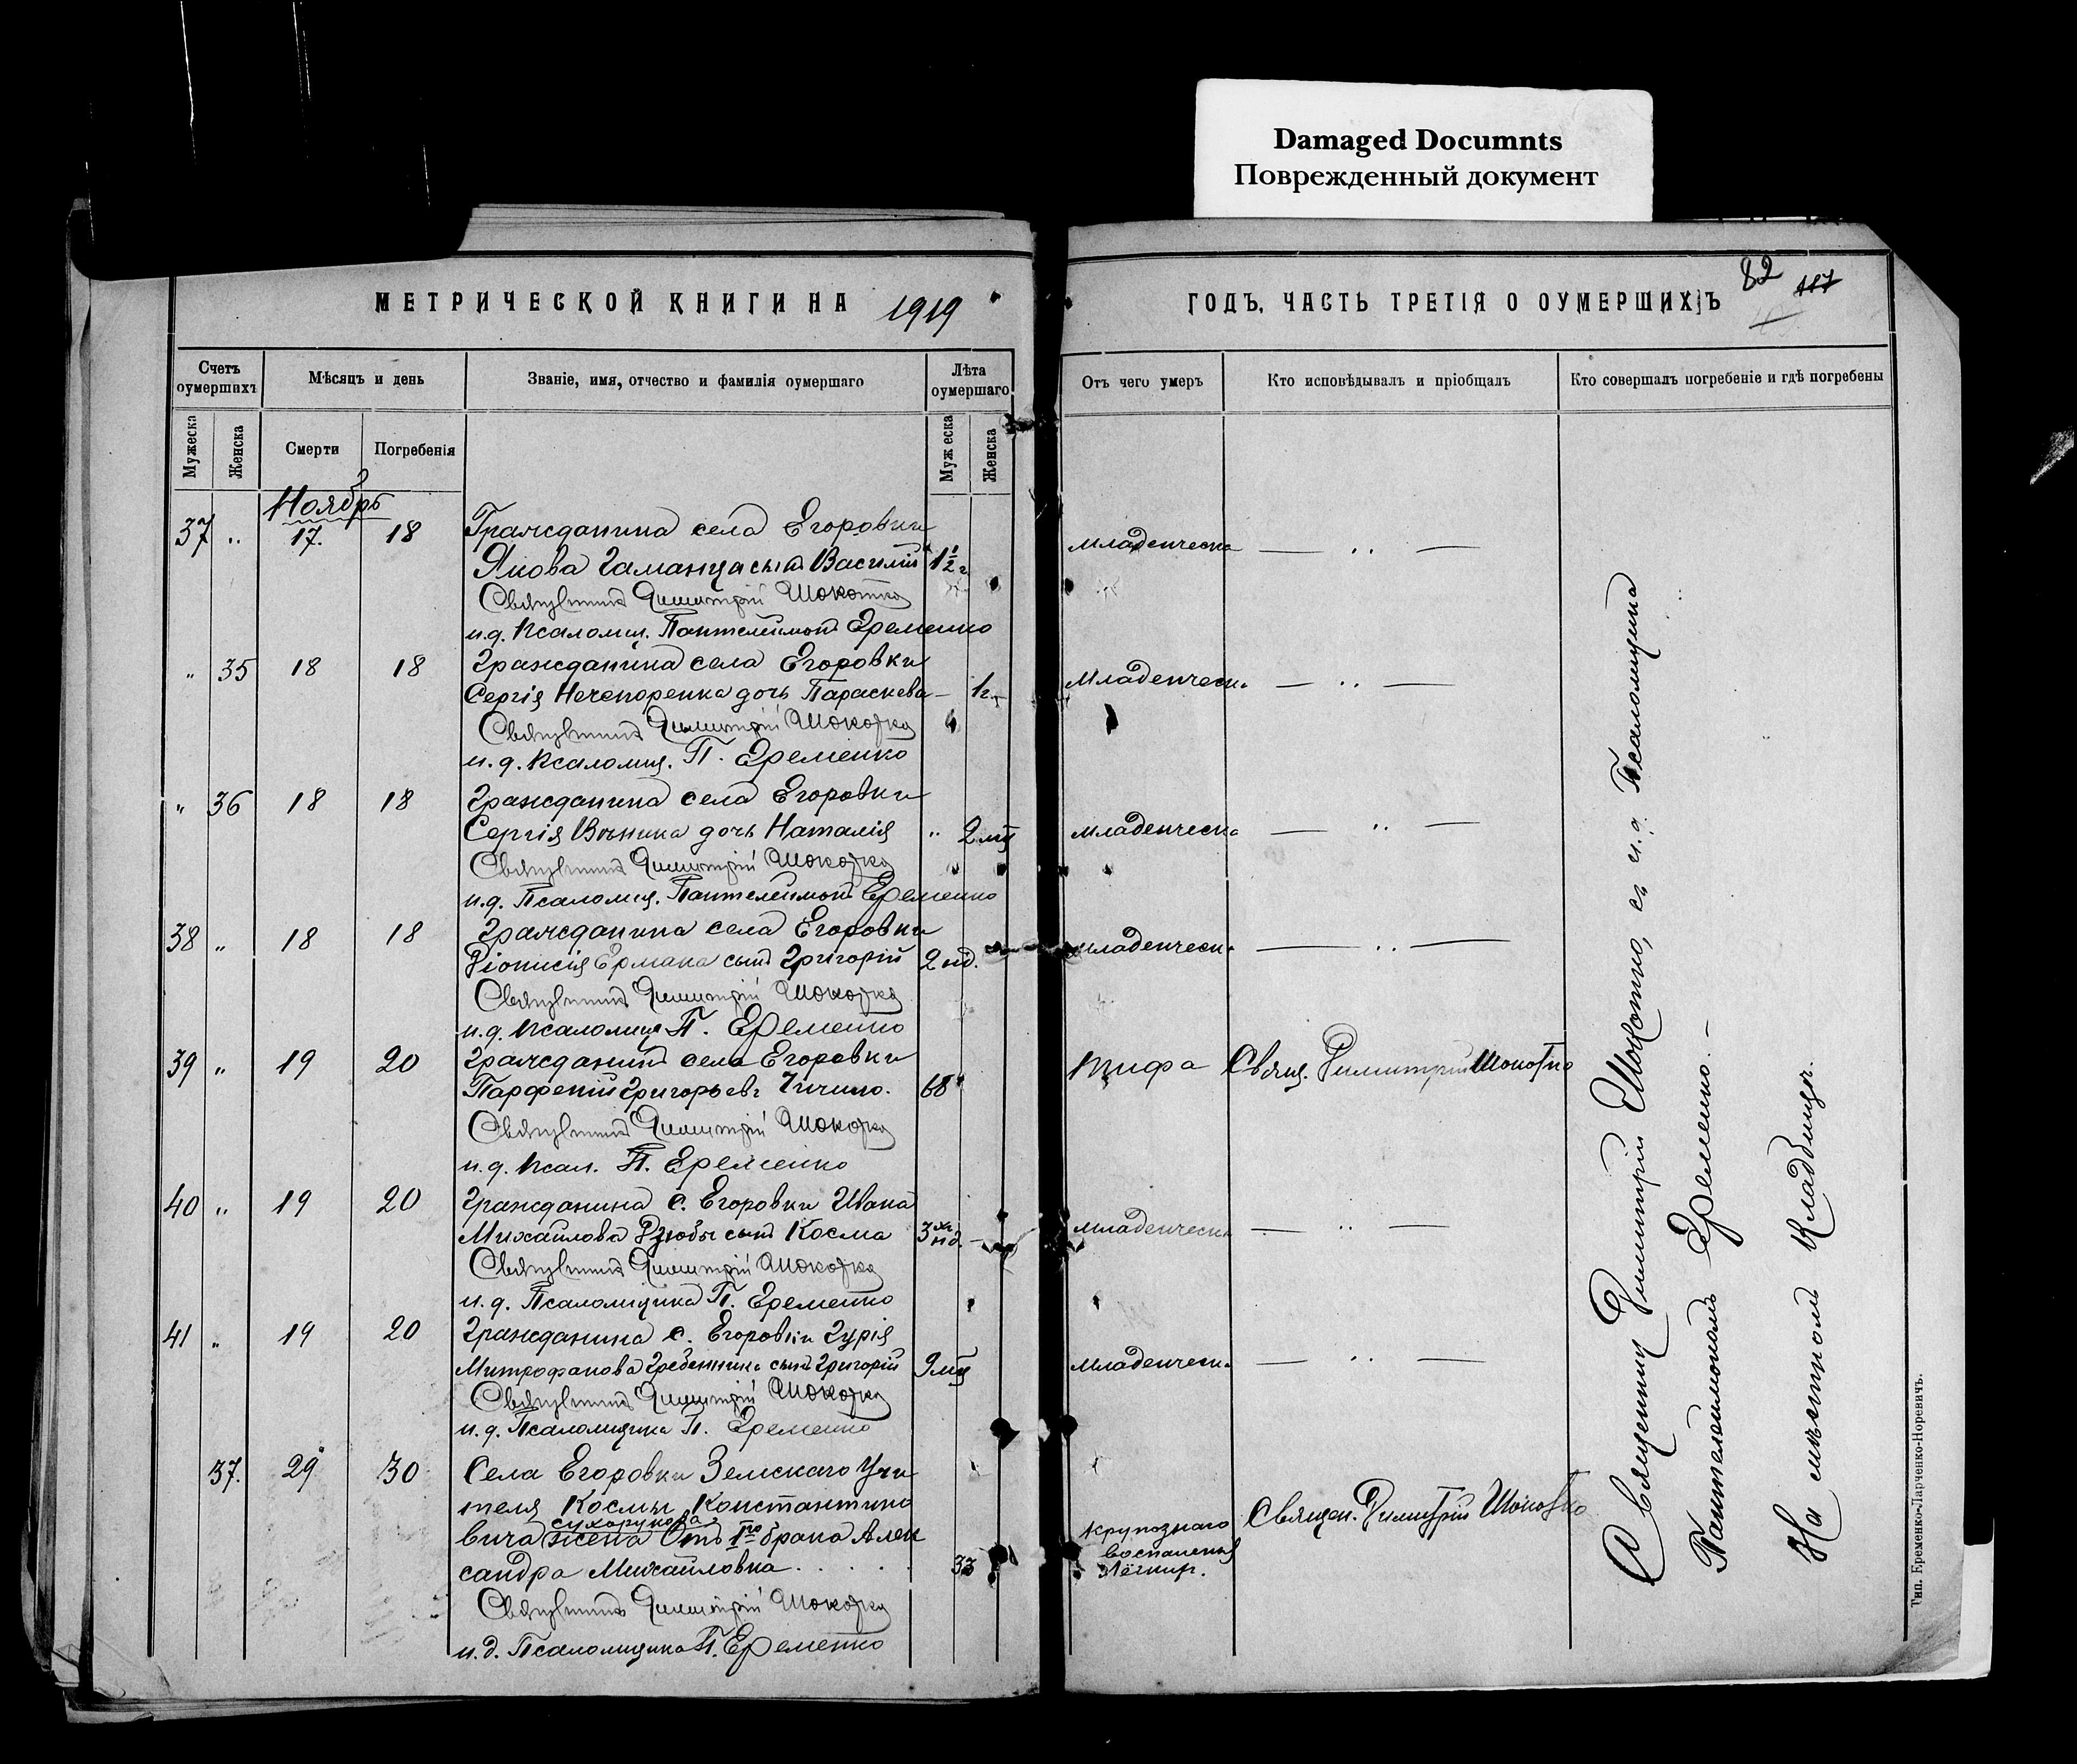 Damaged Documnts
Поврежденный документ
МЕТРИЧЕСКОЙ КНИГИ НА 1919
ГОДЪ, ЧАСТЬ ТРЕТІЯ О ОУМЕРШИХЪ
82
117
Счетъ оумершихъ
Мѣсяцъ и день
Званіе, имя, отчество и фамилія оумершаго
Лѣта оумершаго
Отъ чего умеръ
Кто исповѣдывалъ и пріобщалъ
Кто совершалъ погребеніе и гдѣ погребены
Мужеска
Женска
Смерти
Погребенія
Муж еска
Женска
Ноябрь
37 " 17. 18 Гражданина села Егоровки
Якова Гаманца сынъ Василій 1½ г младенческ
Священникъ Димитрій Шокотко
и.д. псаломщ. Пантелеимонъ Еременко
" 35 18 18 Гражданина села Егоровки
Сергія Нечепоренка дочь Параскева 1г. Младенческ.
Священникъ Димитрій Шокотко
и.д. псаломщ. П. Еременко
" 36 18 18 Гражданина села Егоровки
Сергія дочь Наталія " 2 мц младенческ
Священникъ Димитрій Шокотко
и.д. Псаломщ. Пантелеимонъ Еременко
38 " 18 18 Гражданина села Егоровки
Діонисія Ермака сынъ Григорій 2 нд. младенческ.
Священникъ Димитрій Шокотко
и.д. псаломщ П. Еременко
39 " 19 20 Гражданинъ села Егоровки
Парфеній Григорьевъ 68 тифа Свящ. Димитрій Шокотко
Священникъ Димитрій Шокотко
и.д. псал. П. Еременко
40 " 19 20 Гражданина с. Егоровки Ивана
Михайлова Дзюбы сынъ Косма 3 нд. младенческ
Священникъ Димитрій Шокотко
и.д. Псаломщика П. Еременко
41 " 19 20 Гражданина с. Егоровки Гурія
Митрофанова Гребенника сынъ Григорій 9 мц младенческ.
Священникъ Димитрій Шокотко
и.д. Псаломщика П. Еременко
37. 29 30 Села Егоровки Земскаго Учи
теля Космы Константино
сухорукова
вича жена Отъ 1го брака Алек
сандра Михайловна . . . . . 33
крупознаго
воспаленія
лёгкихъ.
Священ. Димитрій Шокотко
Священникъ Димитрій Шокотко
и.д. Псаломщика П. Еременко
Священникъ Димитрій Шокотко, съ и.д. Псаломщика
Пантелеимономъ Еременко.
На мѣстномъ кладбищѣ.
Тип. Еременко-Ларченко-Норевичъ.